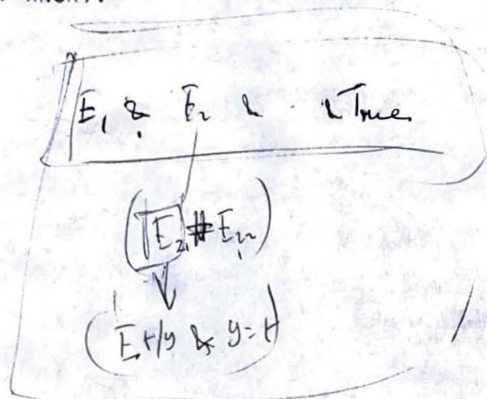 E₁ & E₂ & · & True
(TE₂₁ # E₂₂)
(E t/y & y = t)